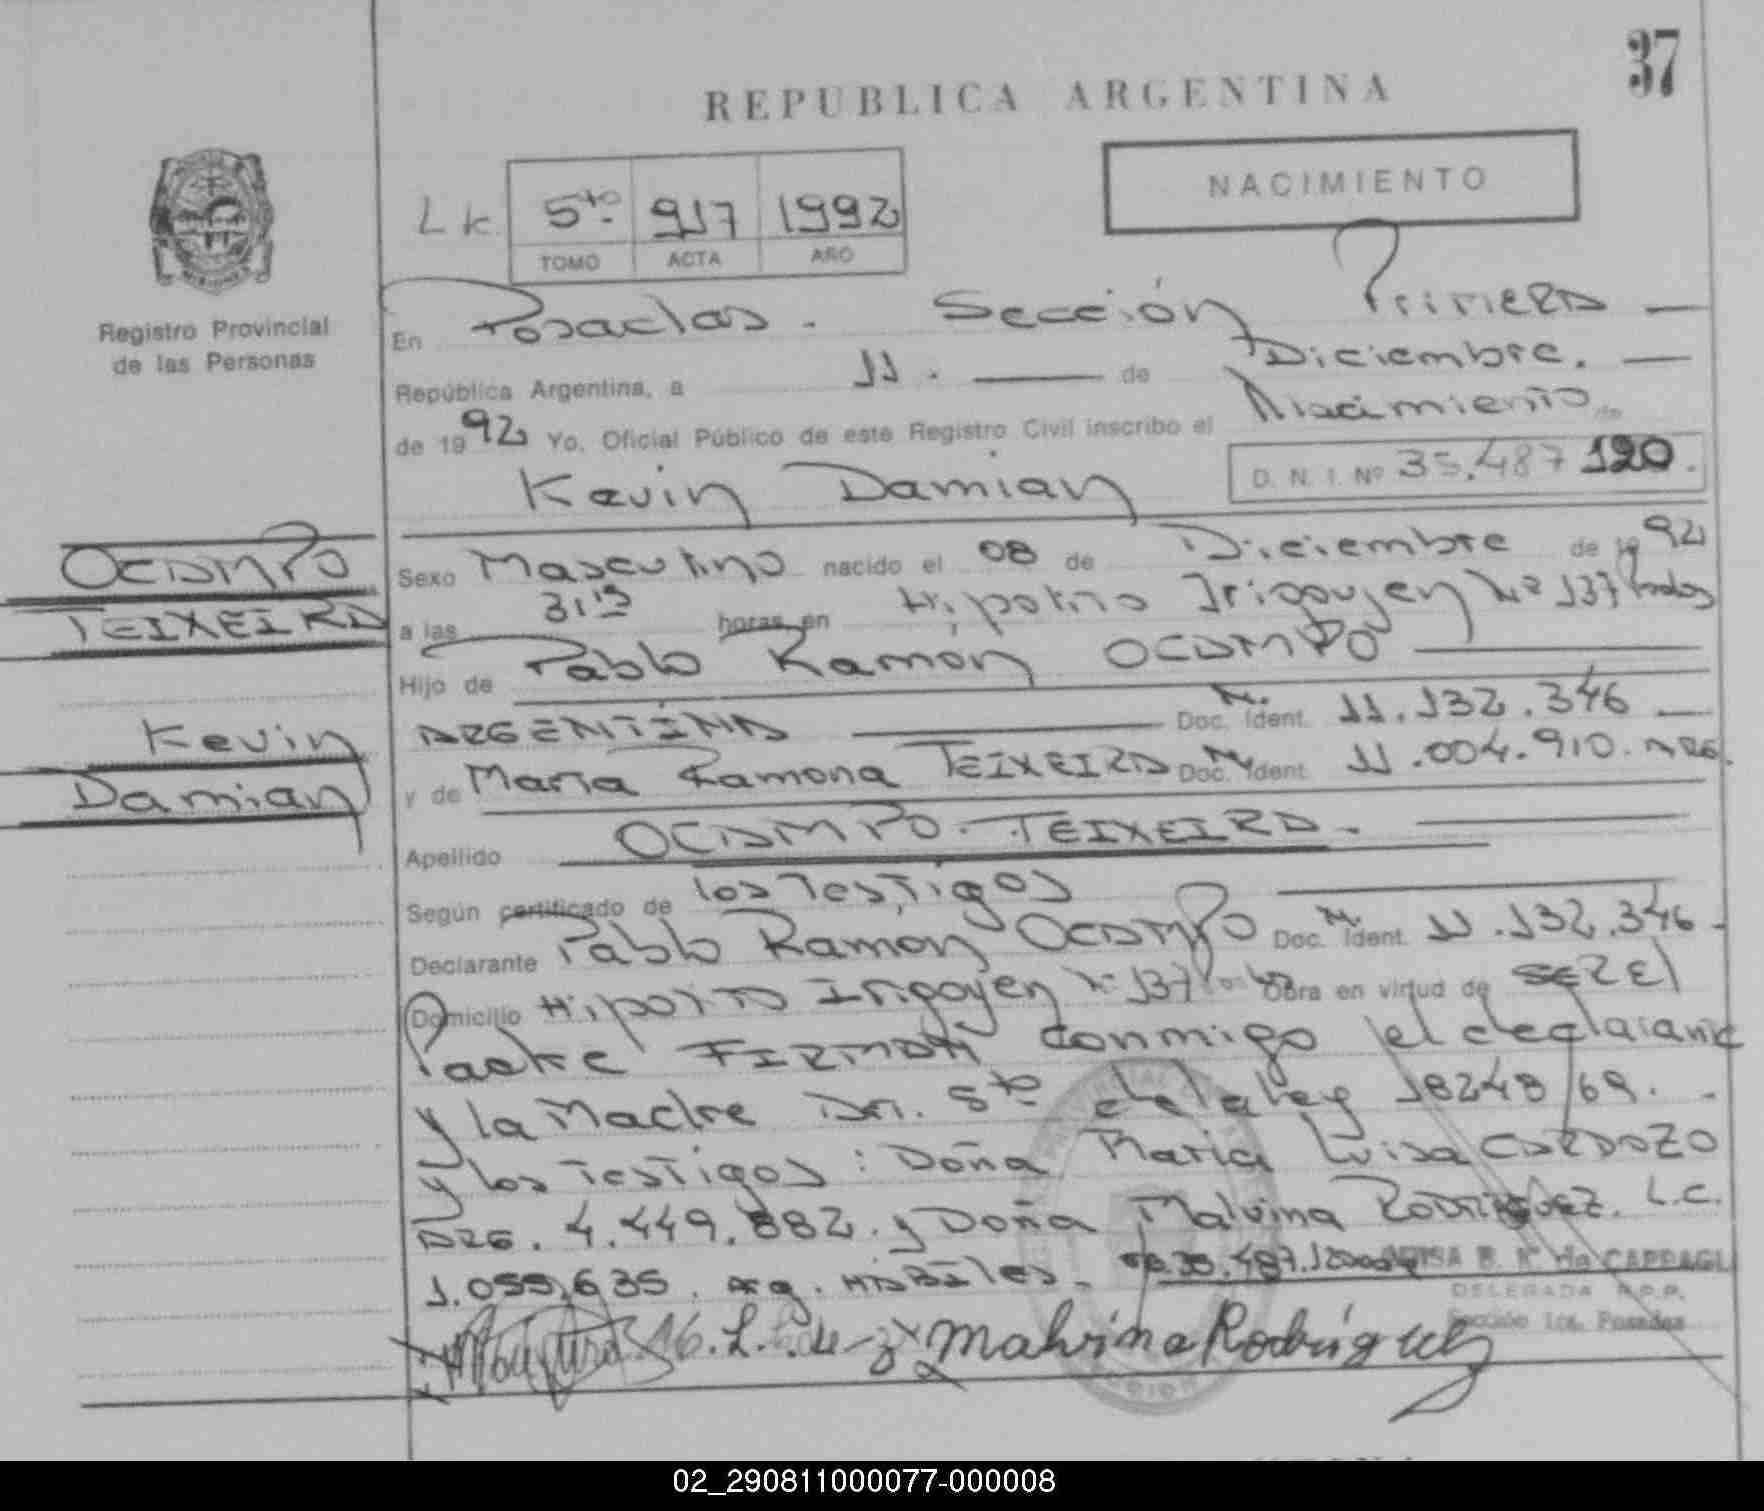 37
REPUBLICA ARGENTINA
NACIMIENTO
5to 917 1992
TOMO ACTA AÑO
Registro Provincial
de las Personas
En Posadas. Sección Primera
República Argentina, a 11. de Diciembre.
de 1992 Yo, Oficial Público de este Registro Civil inscribo el Nacimiento de
D. N. I. Nº 35.487 120.
Kevin Damian
OCAMPO
TEIXEIRA
Kevin
Damian
Sexo Masculino nacido el 08 de Diciembre de 1992
a las horas en Hipolito Irigoyen Nº 137 Posadas
Hijo de Pablo Ramón OCAMPO
ARGENTINA Doc. Ident. 11.132.346
y de Maria Ramona TEIXEIRA Doc. Ident. 11.004.910. ARG.
Apellido OCAMPO. TEIXEIRA.
Según certificado de los Testigos
Declarante Pablo Ramon OCAMPO Doc. Ident. 11.132.346
Domicilio Hipolito Irigoyen Nº 137 Obra en virtud de SER El
Padre FIRMAN conmigo el declarante
y la Madre Art. 5to de la ley 18248/69.
y los Testigos: Doña Maria Luisa CARDOZO
ARG. 4.449.882. y Doña Malvina RODRIGUEZ. L.C.
1.055.635. Arg. HABILES.
DELEGADA R.P.P.
Sección 1ra. Posadas
Malvina Rodriguez
02_290811000077-000008